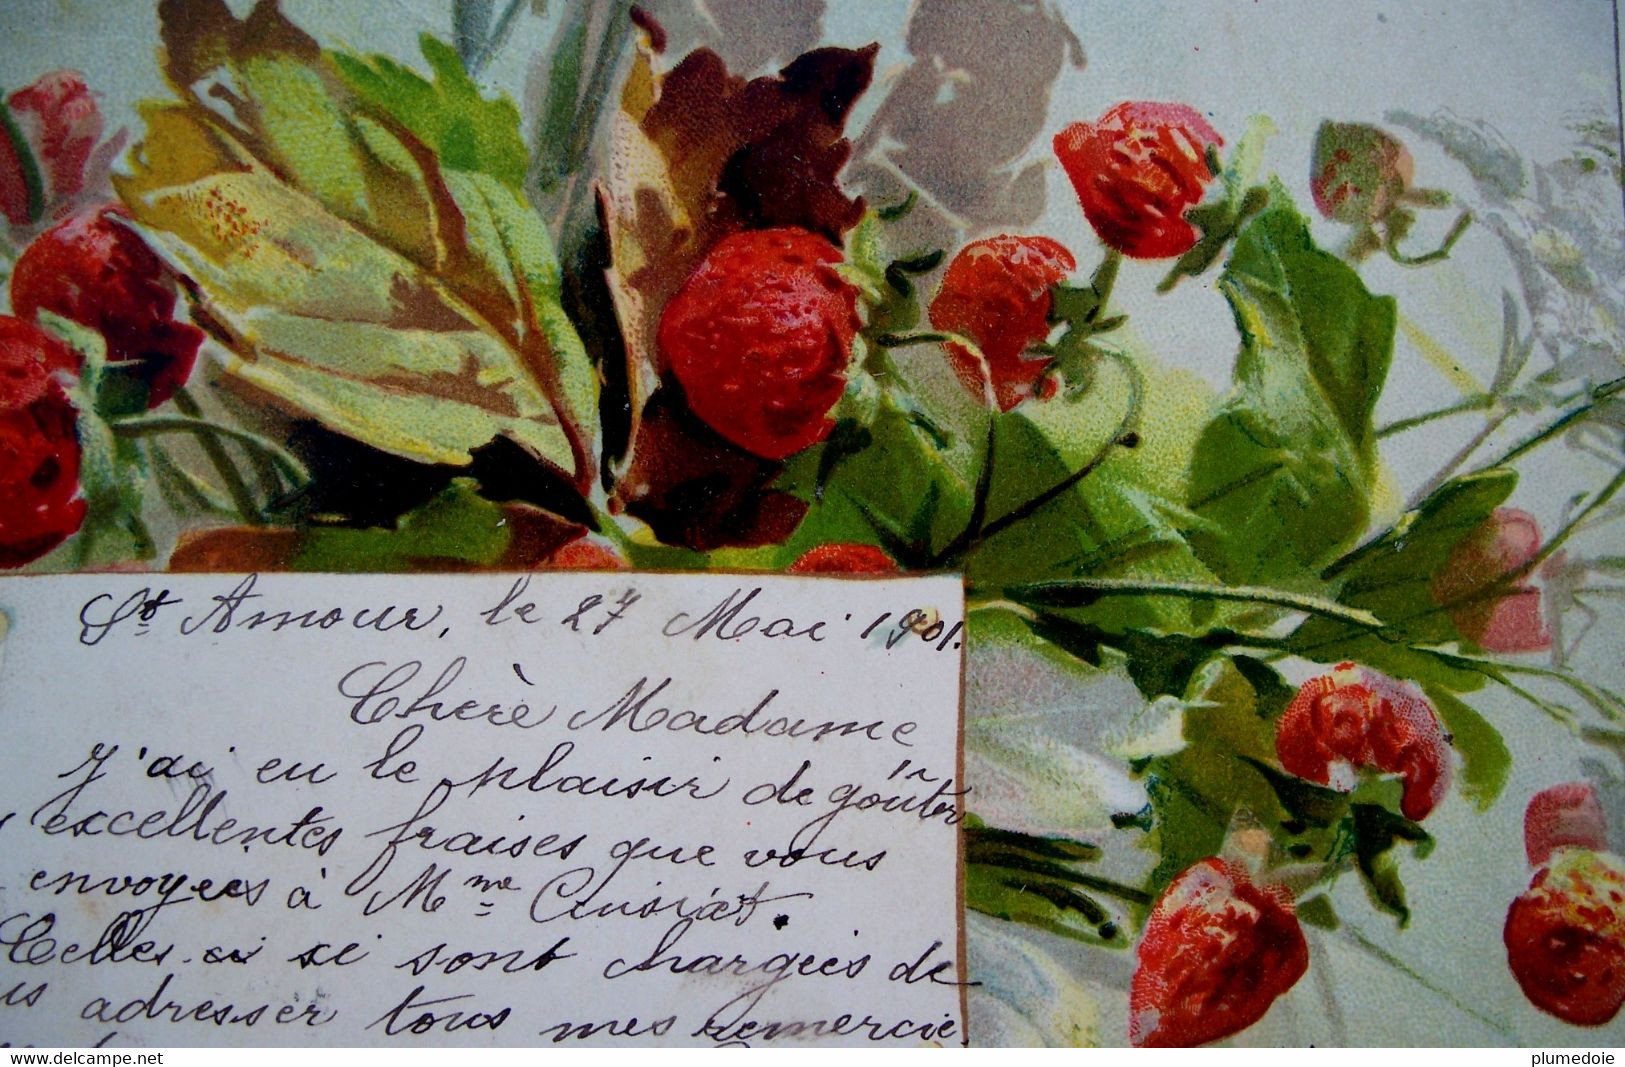 St Amour, le 27 Mai 1901.
Chère Madame
J'ai eu le plaisir de goûter
excellentes fraises que vous
envoyées à Mme
Celles ci si sont chargées de
us adresser tous mes remercie
www.delcampe.net
plumedoie